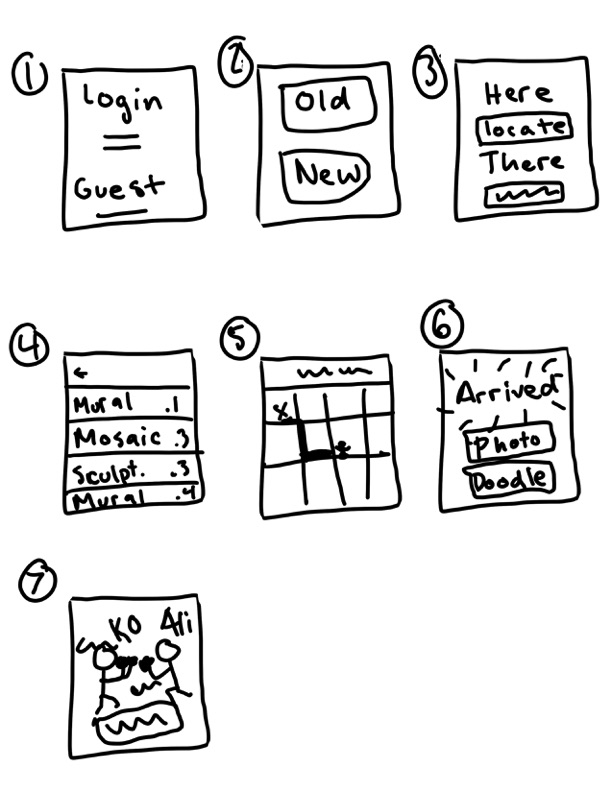 1
Login
Guest
2
Old
New
3
Here
locate
There
4
←
Mural .1
Mosaic .3
Sculpt. .3
Mural .4
5
x
6
Arrived
Photo
Doodle
7
KO Ali